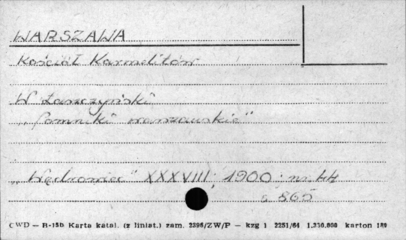 WARSZAWA
Kościół Karmelitów
W Łaszczyński
"Pomniki warszawskie"
"Wędrowiec" XXXVIII; 1900; nr. 44
s. 865
CWD — R-15b Karta katal. (z liniat.) zam. 2295/ZW/P — kzg 1 2251/64 1.230.000 karton 189